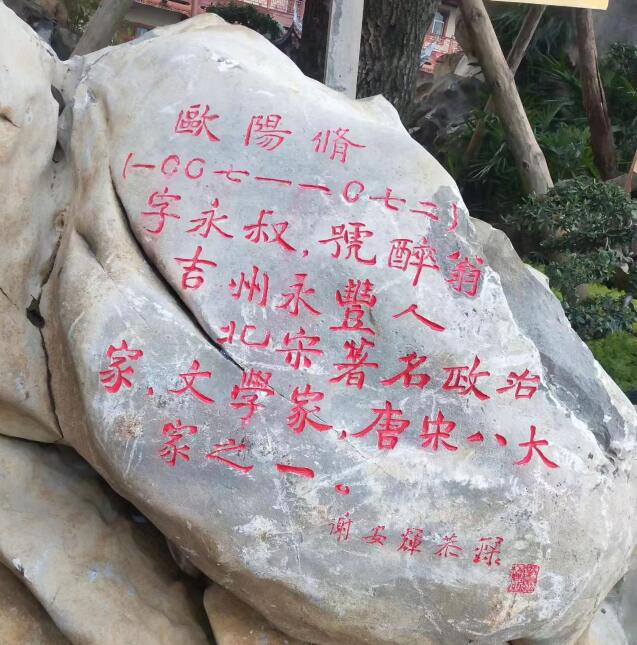 歐陽脩
(一〇〇七—一〇七二)
字永叔,號醉翁
吉州永豐人
北宋著名政治
家,文學家,唐宋八大
家之一。
谢安輝恭録